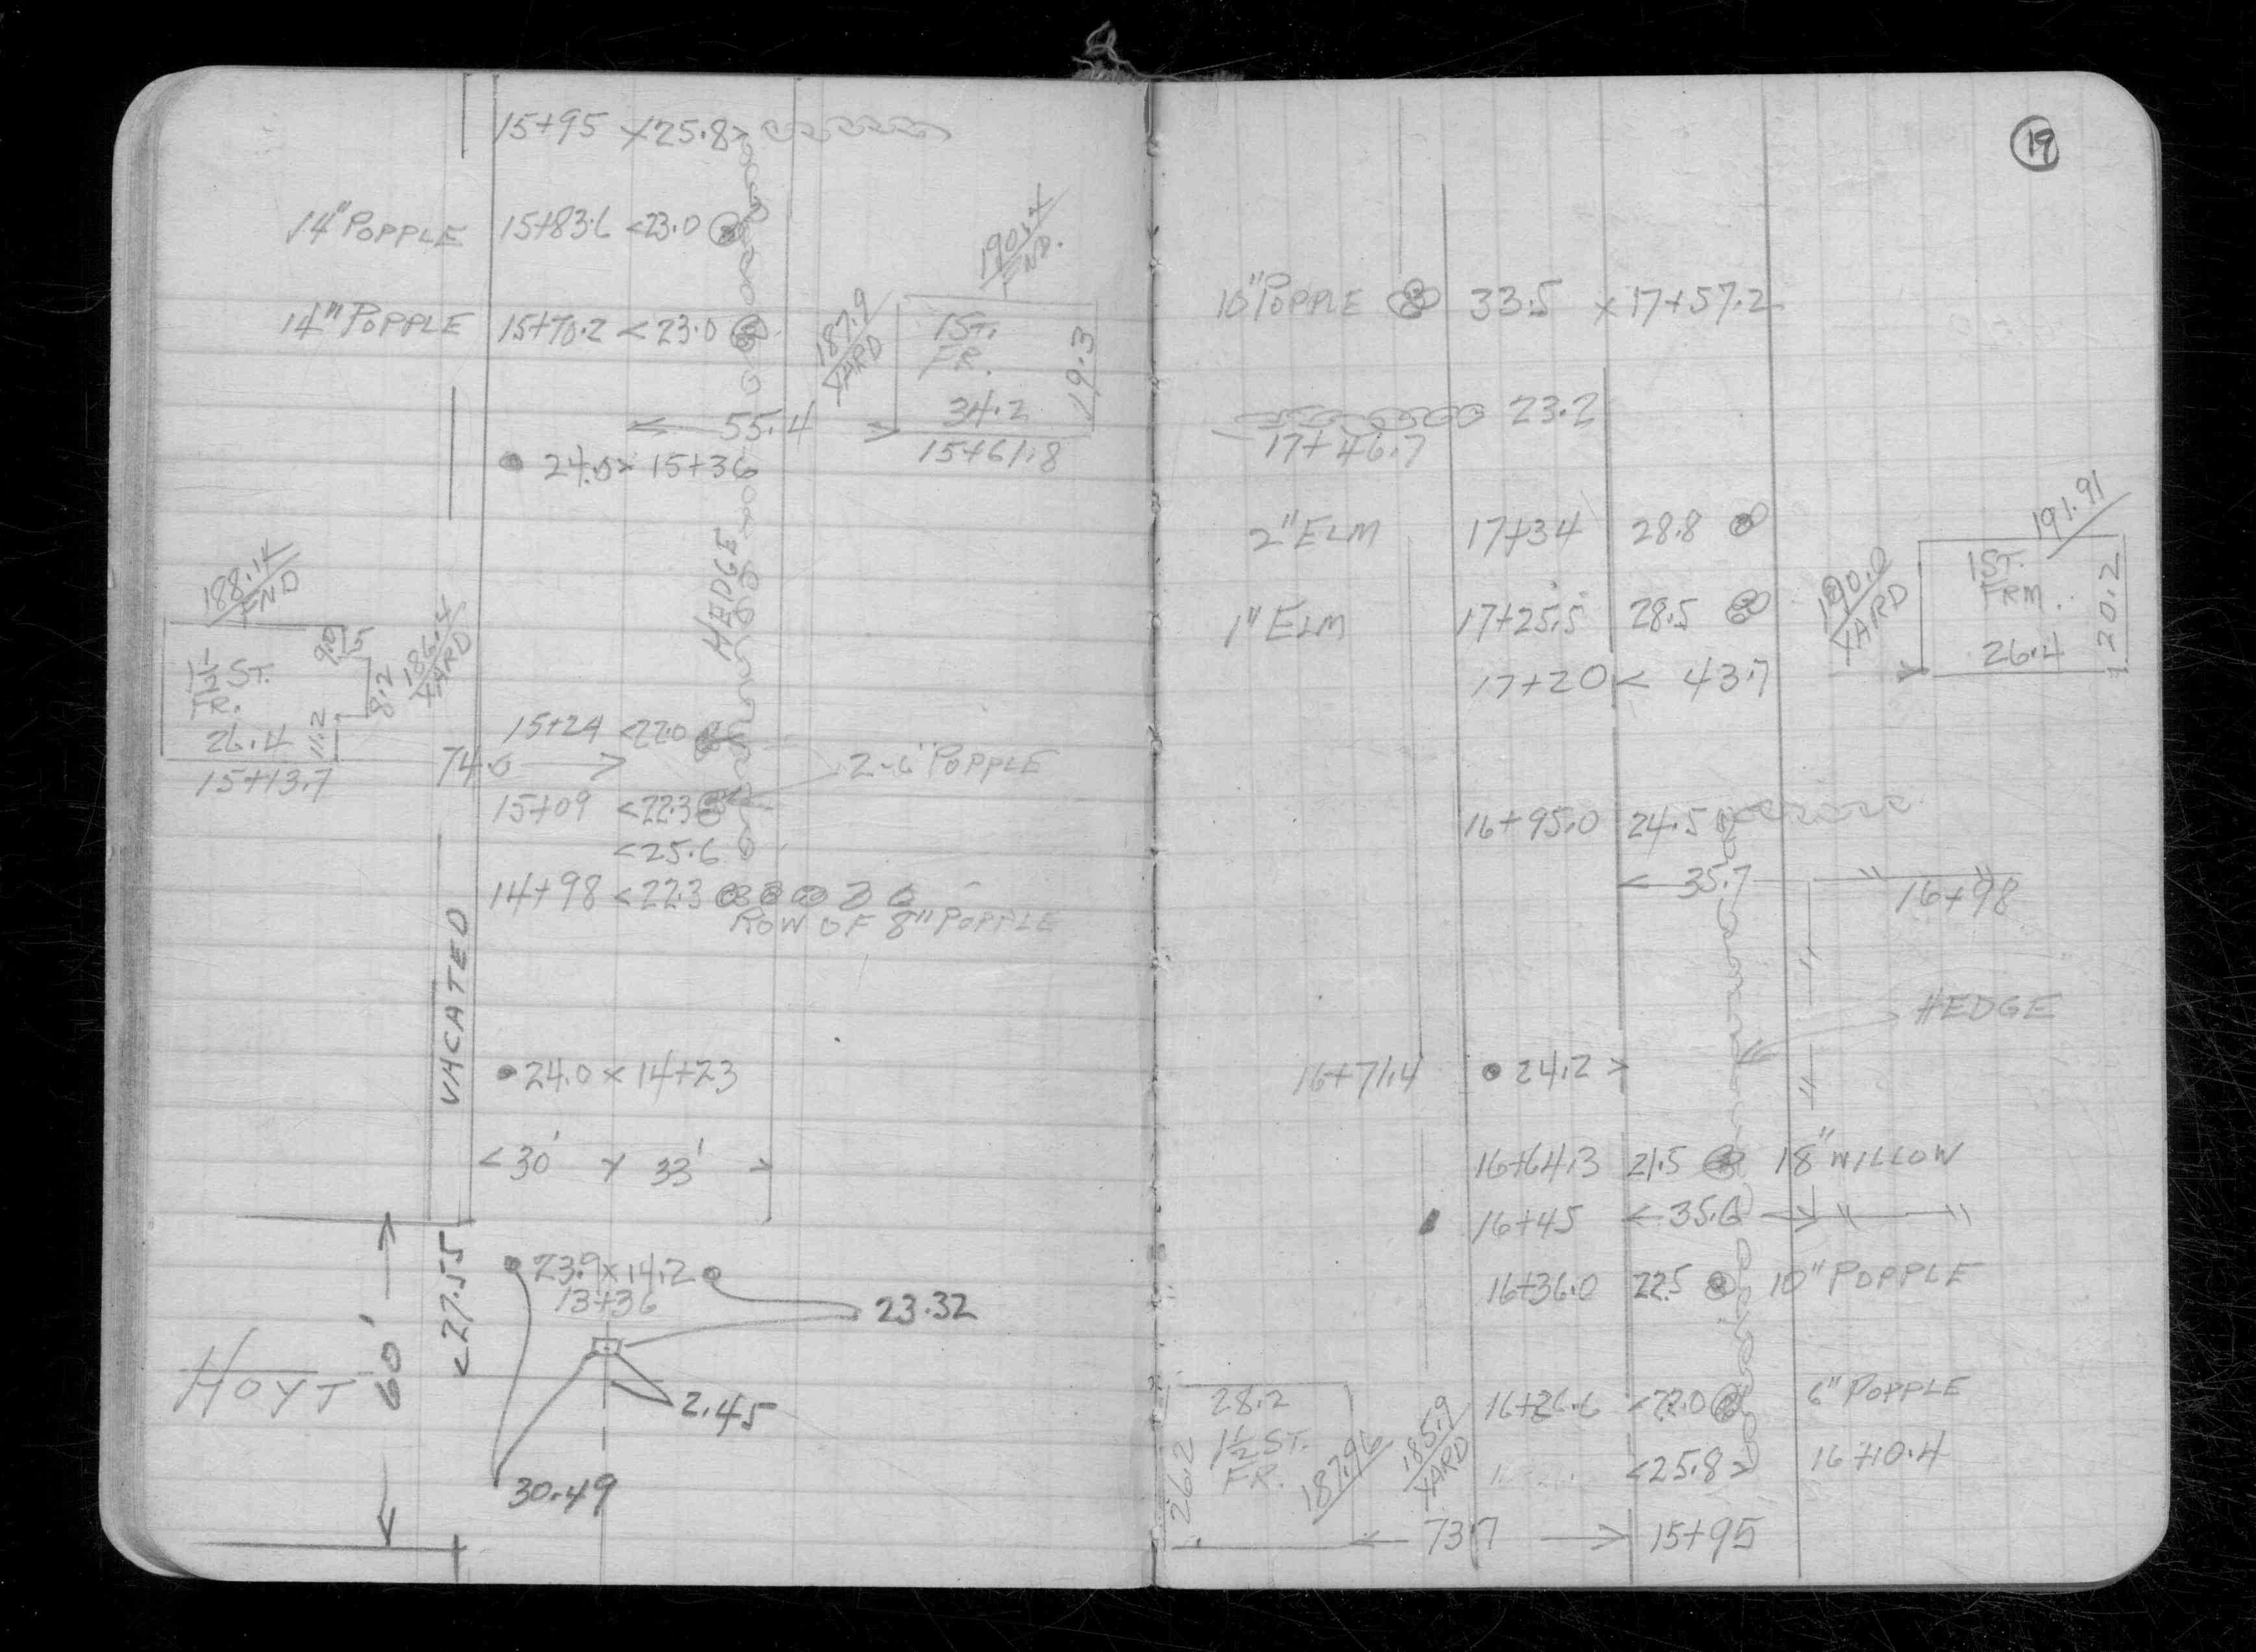 15+95 x 25.8>
14" POPPLE 15+83.6 <23.0
190.4
FND.
14" POPPLE 15+70.2 <23.0
187.9
YARD
1ST.
FR.
34.2
19.3
15+61.8
<— 55.4 >
24.0> 15+36
HEDGE
188.14
FND
1½ ST.
FR.
26.4
9.0
5
8.2
11.2
186.4
YARD
15+13.7
15+24 <22.0
74.6 —>
2-6" POPPLE
15+09 <22.3
<25.6
14+98 <22.3
ROW OF 8" POPPLE
VACATED
24.0 x 14+23
<30' x 33' >
<27.55
23.9 x 14.2
13+36
23.32
HOYT
60'
2.45
30.49
19
10" POPPLE 33.5 x 17+57.2
23.2
17+46.7
2" ELM 17+34 28.8
191.91
1" ELM 17+25.5 28.5
190.0
YARD
1ST.
FRM.
26.4
20.2
17+20 < 43.7
16+95.0 24.5
<— 35.7
16+98
HEDGE
16+71.4 24.2 >
16+64.3 21.5 18" WILLOW
16+45 <35.6 —>
16+36.0 22.5 10" POPPLE
28.2
1½ ST.
FR.
26.2
187.96
185.9
YARD
16+26.6 <22.0 6" POPPLE
<25.8> 16+10.4
<— 73.7 —> 15+95